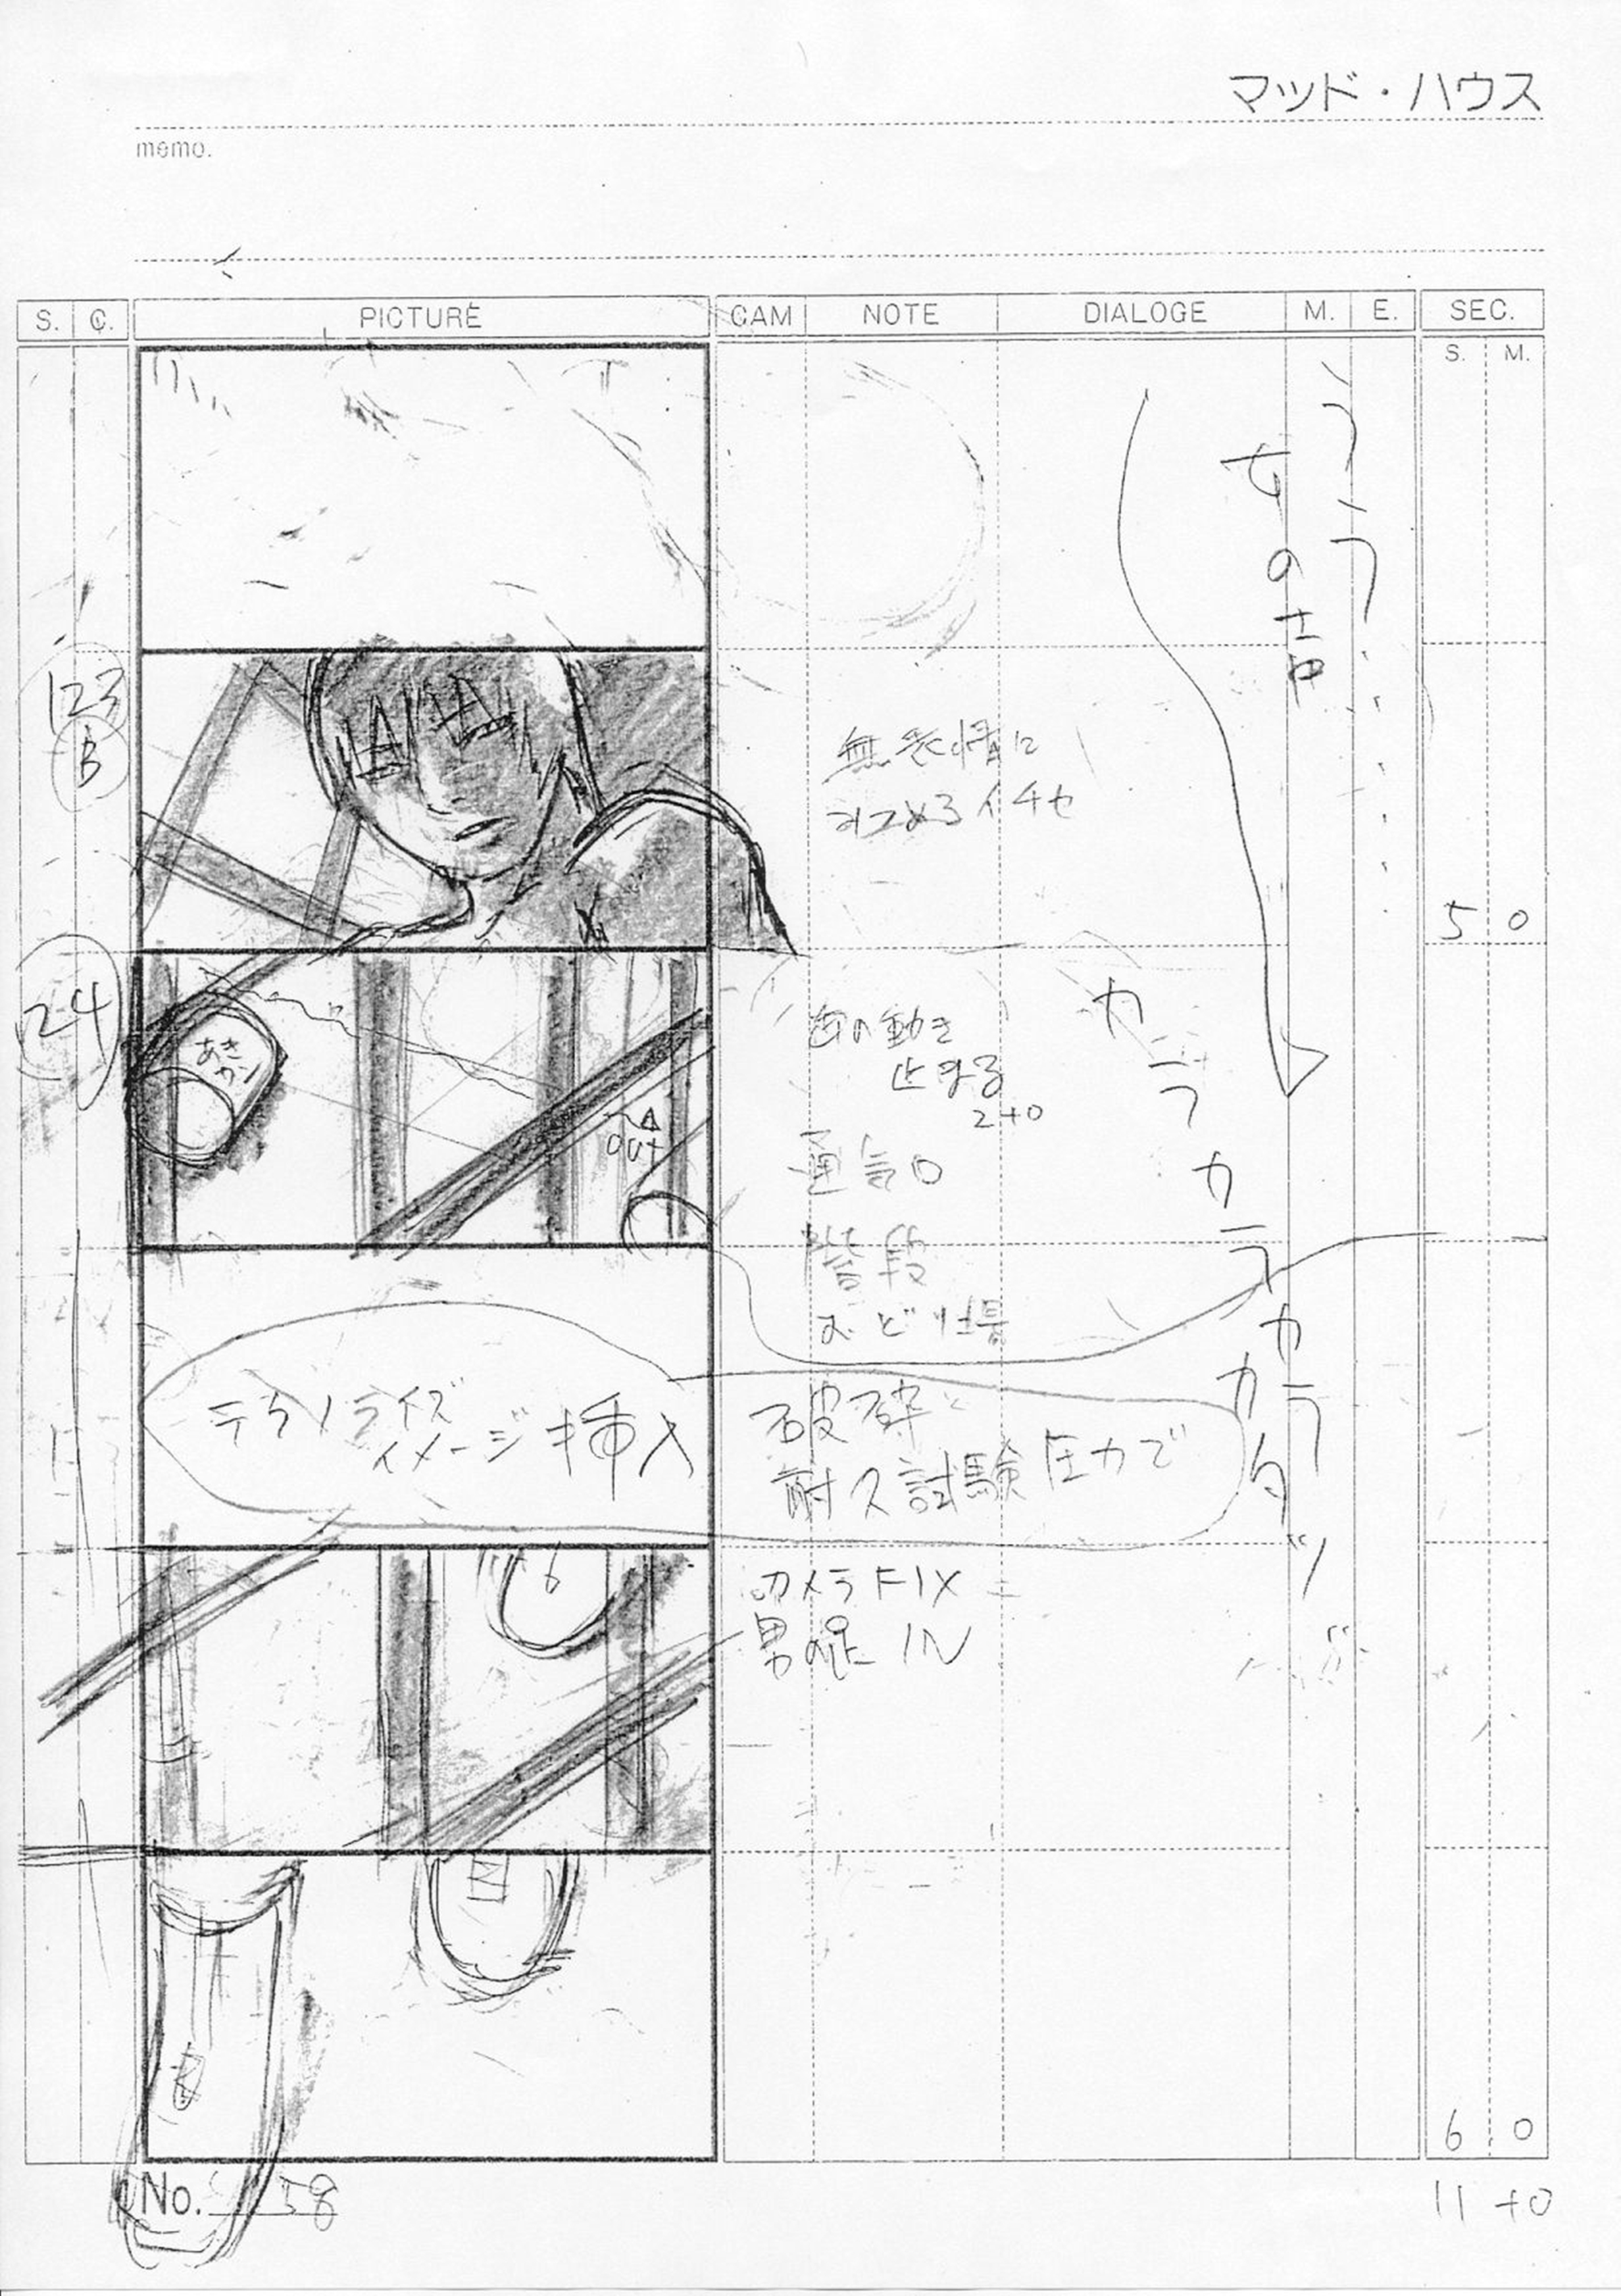 マッド・ハウス
memo.
S. C. PICTURE CAM NOTE DIALOGE M. E. SEC.
S. M.
女の声
123
B
無表情に
みつめるイチセ
5 0
124
あき
カン
OUT
缶の動き
止まる
2+0
カラ
カラ
カラ
カラ
通気口
階段
おどり場
テクノライズ
イメージ挿入
破砕
耐久試験圧力で
カメラFIX
男の足 IN
6 0
No. 58
11+0